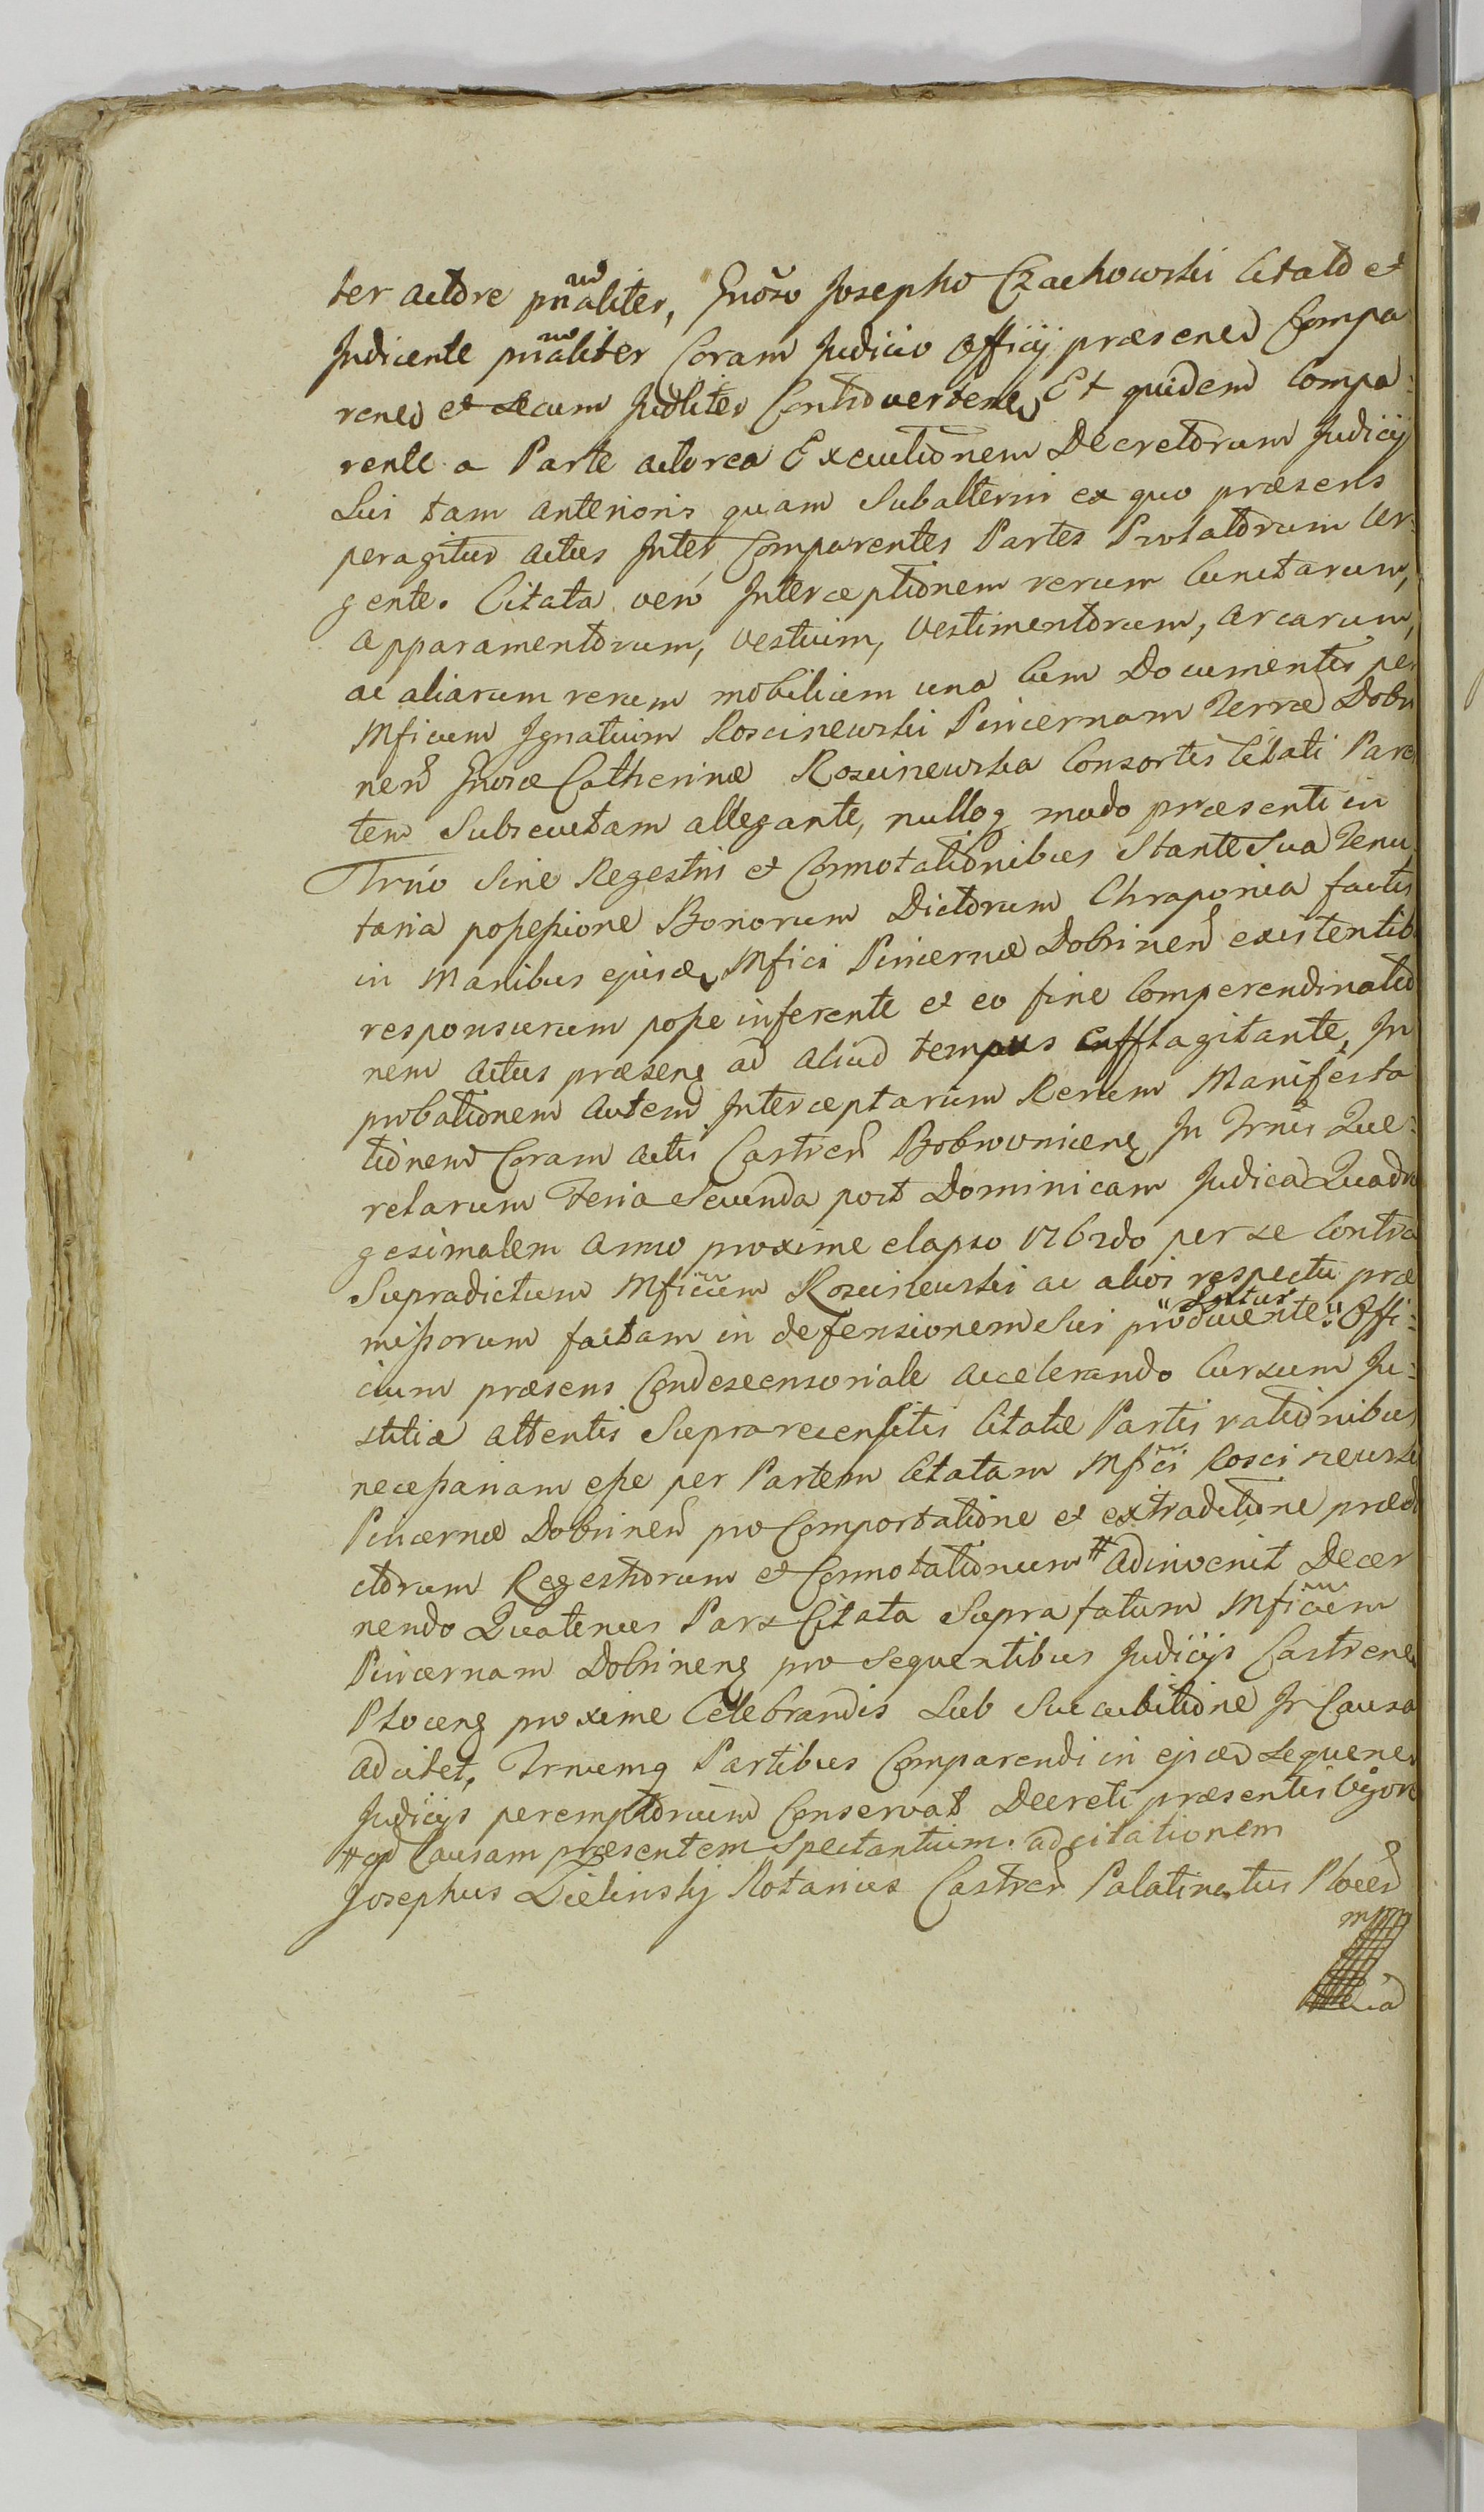 ter actore pnaliter, Gnoso Josepho Czachowski Citato et
Judicente pnaliter Coram Judicio Officij præsenes Compa
renes et secum Judliter Controvertenes Et quidem Compa:
rente a Parte actorea Executionem Decretorum Judicij
Sui tam anterioris quam Subalterni ex quo præsens
peragitur actus Inter Comparentes Partes Prolatorum Ur:
gente. Citata vero Interceptionem rerum Cunctarum,
apparamentorum, vestium, Vestimentorum, arcarum,
ac aliarum rerum mobilium una Cum Documentis per
Mficum Ignatium Koscinewski Pincernam Terræ Dobri
nens Gnosæ Catherinæ Koscinewska Consortis Citati Paren
tem Subsecutam allegante, nulloq modo præsenti in
Trno Sine Regestris et Connotationibus Stante Sua Tenu
taria possessione Bonorum Dictorum Chraponia factis
in Manibus ejusd Mfici Pincernæ Dobrinens existentib
responsurum posse inferente et eo fine Comperendinatio
nem actus præsens ad aliud tempus efflagitante, In
probationem autem Interceptarum Rerum Manifesta
tionem Coram actis Castren Bobrovnicens In Trnis Que:
relarum Feria Secunda post Dominicam Judica Quadra
gesimalem anno proxime elapso 1762do per se Contra
Supradictum Mficum Koscinewski ac alios respectu præ
missorum factam in defensionem Sui producente. Offi:
cium præsens Condescensoriale accelerando Cursum Ju:
stitiæ attentis Suprarecensitis Citatæ Partis rationibus
necessariam esse per Partem Citatam Mfici Koscinewski
Pincernæ Dobrinens pro Comportatione et extraditione prædi
ctorum Regestrorum et Connotationum # adinvenit Decer
nendo Quatenus Pars Citata Suprafatum Mficum
Pincernam Dobrinens pro sequentibus Judicijs Castrens
Plocens proxime Celebrandis Sub Succubitione In Causa
adcitet, Trnumq Partibus Comparendi in ejsd sequenes
Judicijs peremptorium Conservat Decreti præsentis Vigore
# ad Causam præsentem Spectantium. adcitationem
Josephus Zielinskij Notarius Castren Palatinatus Plocen
mpp